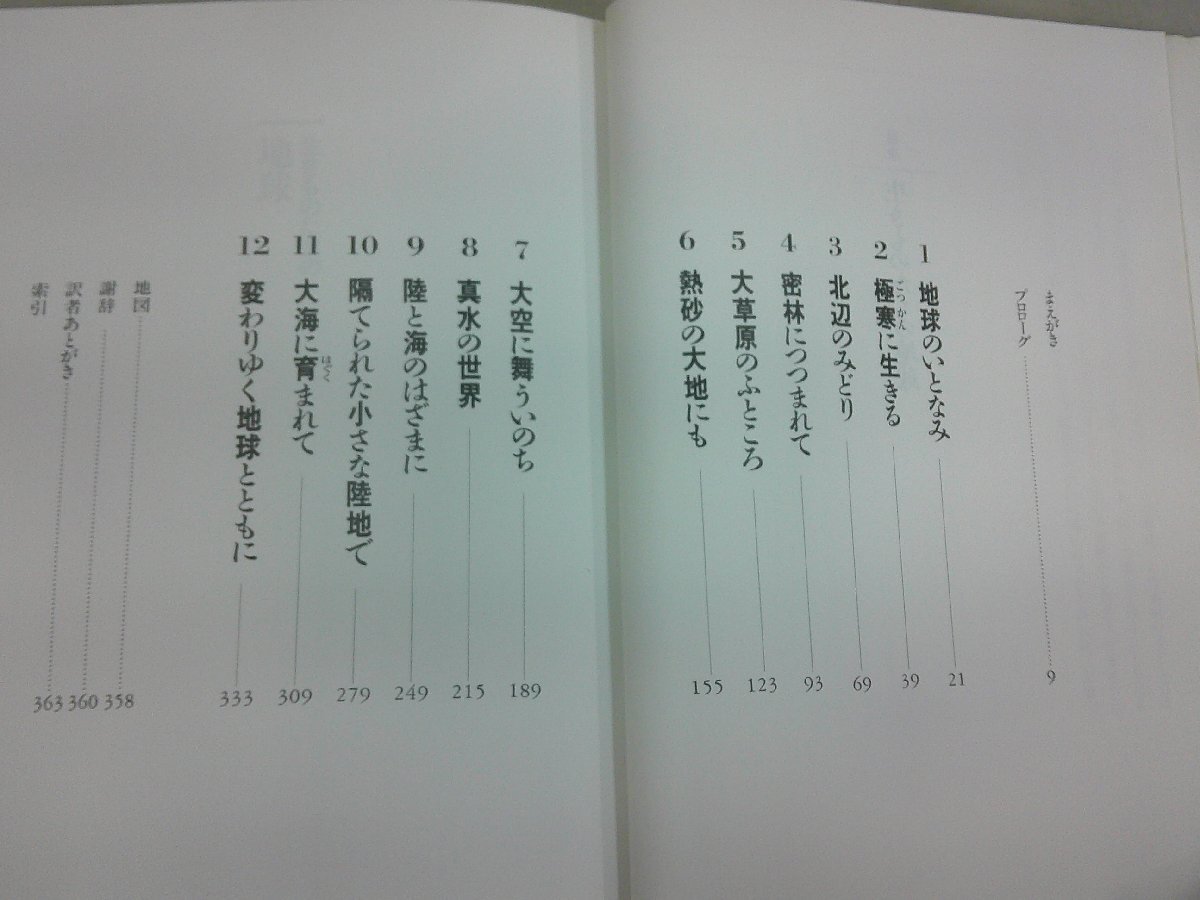 まえがき
プロローグ 9
1 地球のいとなみ 21
2 極寒に生きる 39
ごっかん
3 北辺のみどり 69
4 密林につつまれて 93
5 大草原のふところ 123
6 熱砂の大地にも 155
7 大空に舞ういのち 189
8 真水の世界 215
9 陸と海のはざまに 249
10 隔てられた小さな陸地で 279
11 大海に育まれて 309
はぐく
12 変わりゆく地球とともに 333
地図 358
謝辞 360
訳者あとがき 363
索引